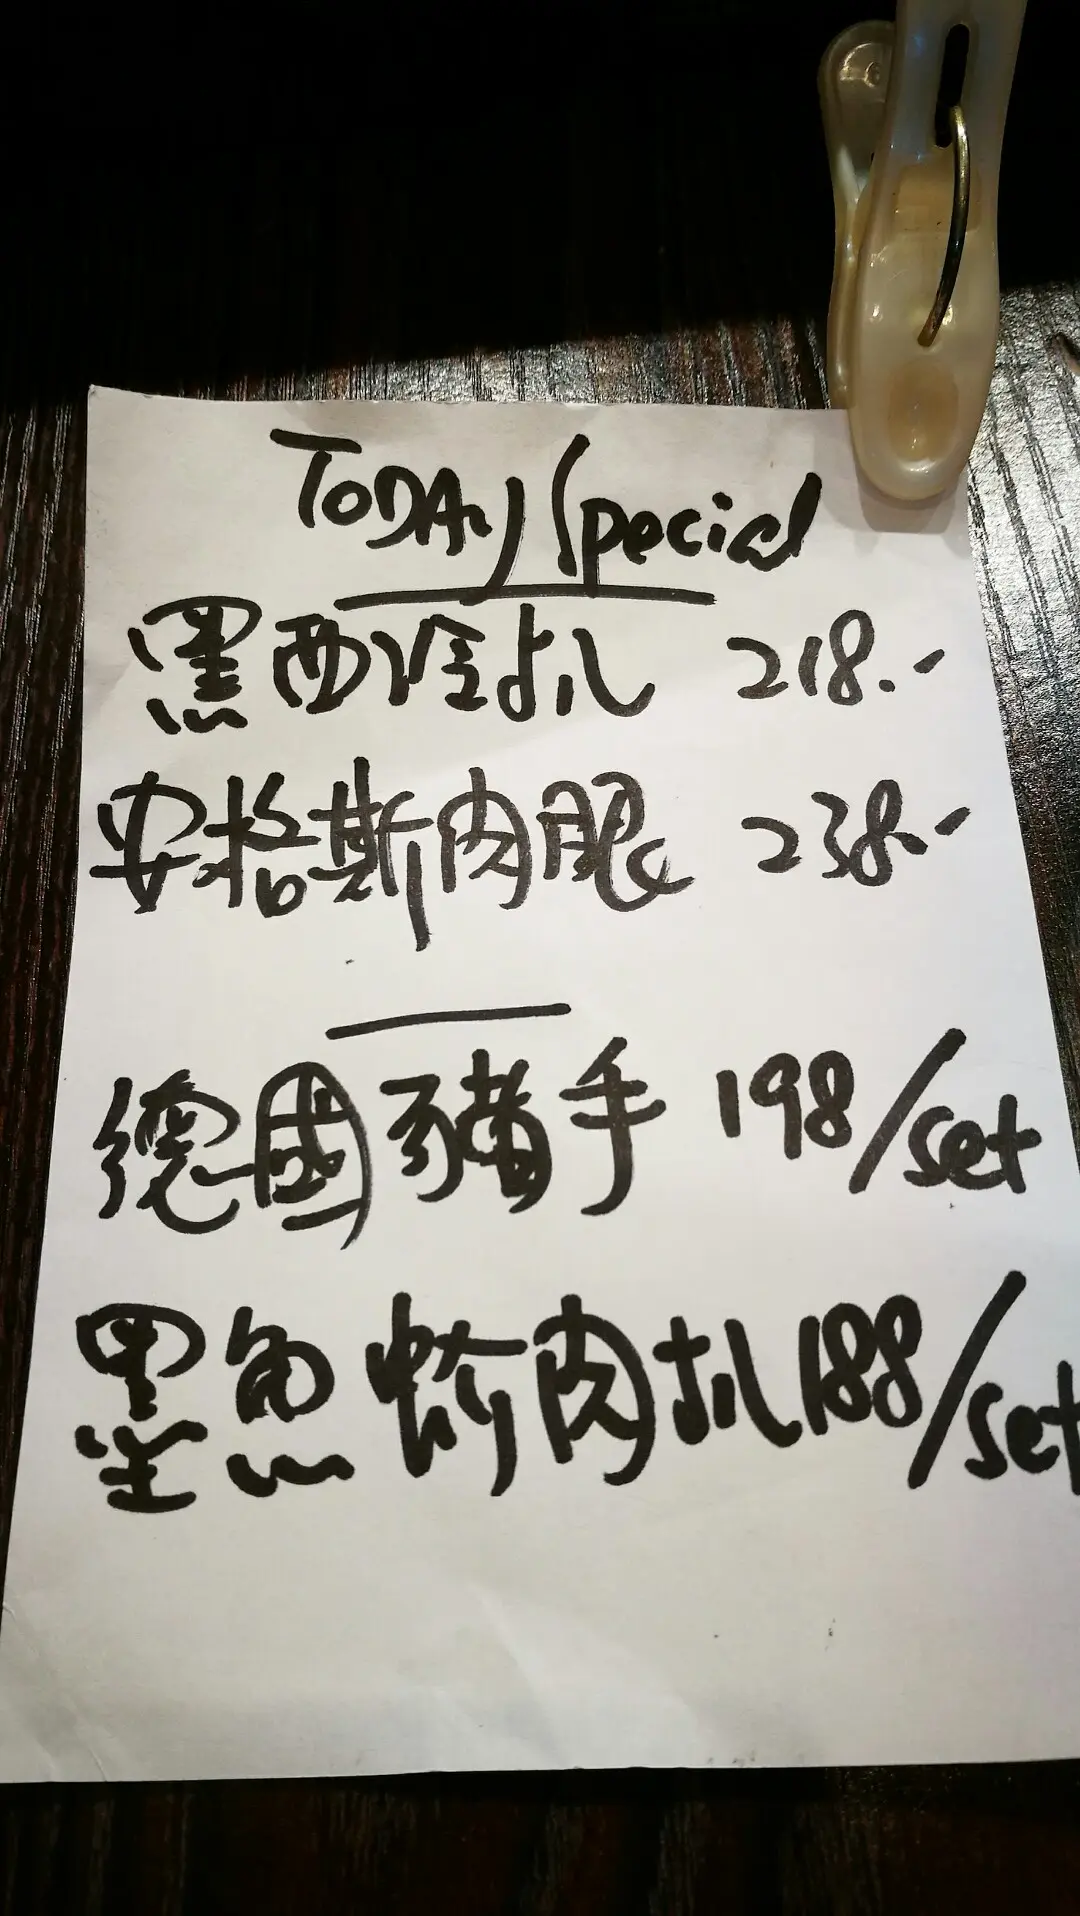 TODAy Special
黑西冷扒 218.-
安格斯肉眼 238.-
德國豬手 198/set
墨魚 肉扒 188/set